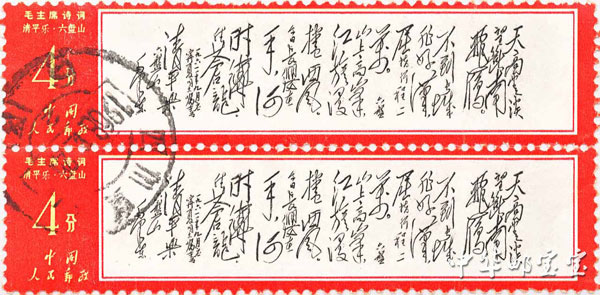 毛主席诗词
清平乐·六盘山
4分
中国
人民邮政
天高云淡
望断南
飞雁
不到长城
非好汉
屈指行程二
万
六盘
山上高峰
红旗漫
卷西风
今日长缨在
手何
时缚
住苍龙
清平乐
六盘山
毛主席诗词
清平乐·六盘山
4分
中国
人民邮政
天高云淡
望断南
飞雁
不到长城
非好汉
屈指行程二
万
六盘
山上高峰
红旗漫
卷西风
今日长缨在
手何
时缚
住苍龙
清平乐
六盘山
中华邮宝宝